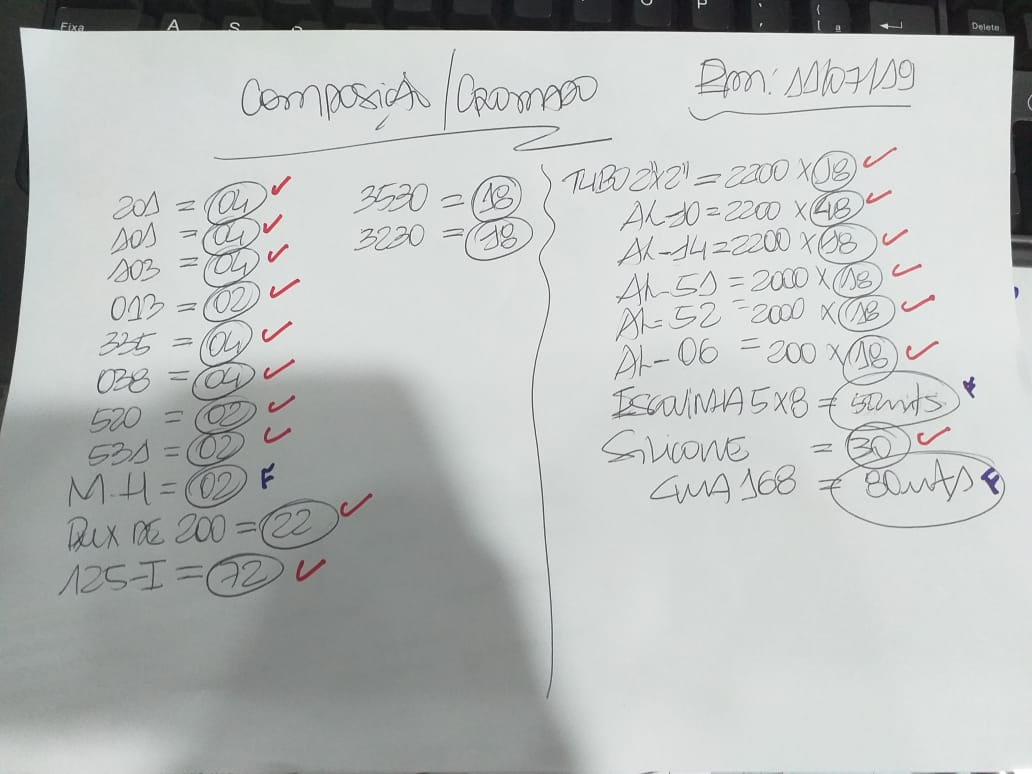 Composição / Cromado
Em: 11/07/19
201 = 04
101 = 04
103 = 04
013 = 02
335 = 04
038 = 04
520 = 02
531 = 02
M.H = 02 F
DE 200 = 22
125-I = 72
3530 = 18
3230 = 18
TUBO 2"X2" = 2200 X 18
AL-10 = 2200 X 48
AL-14 = 2200 X 18
AL-51 = 2000 X 18
AL-52 = 2000 X 18
AL-06 = 200 X 18
ESCOVINHA 5X8 = 50 mts
SILICONE = 30
GUA 168 = 80 mts F
Fixa
A
S
Delete